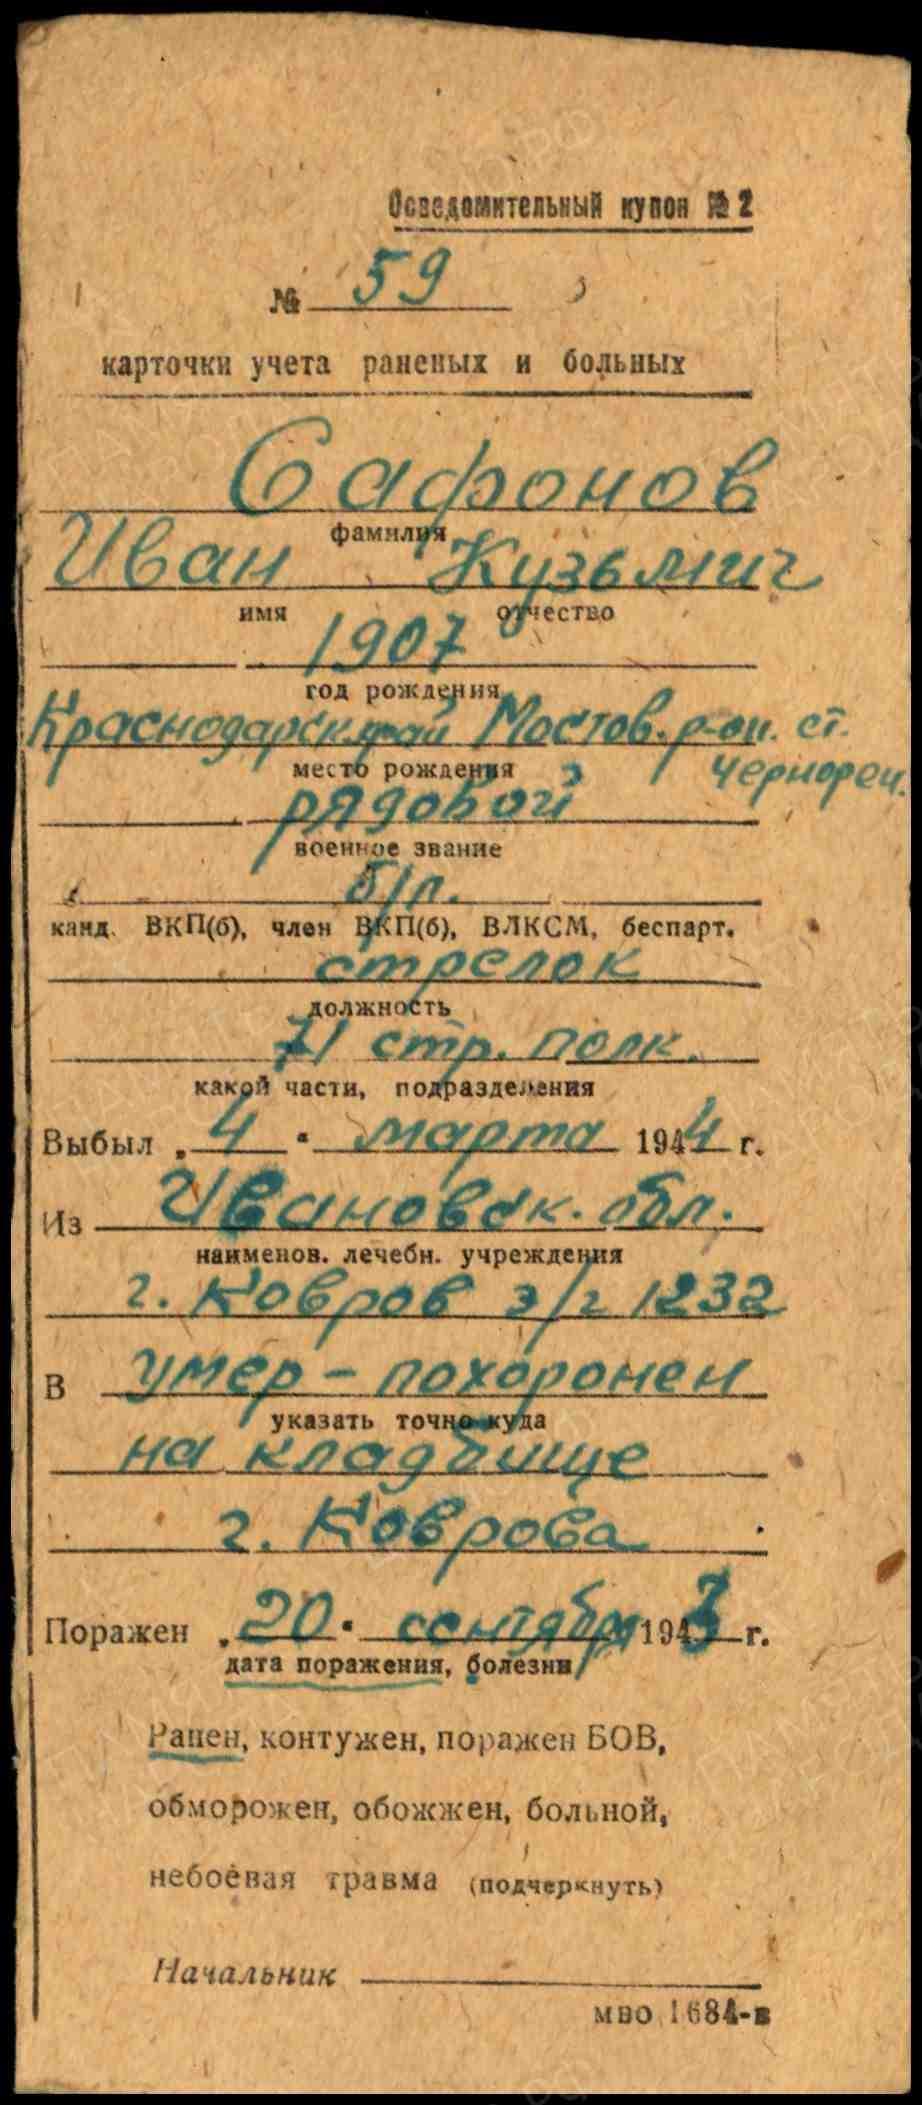 Осведомительный купон № 2
№ 59
карточки учета раненых и больных
Сафонов
фамилия
Иван Кузьмич
имя отчество
1907
год рождения
Краснодарск. край Мостов. р-он. ст.
Чернореч.
место рождения
рядовой
военное звание
б/п.
канд. ВКП(б), член ВКП(б), ВЛКСМ, беспарт.
стрелок
должность
71 стр. полк.
какой части, подразделения
Выбыл „4" марта 1944 г.
Из Ивановск. обл.
наименов. лечебн. учреждения
г. Ковров э/г 1232
В умер – похоронен
указать точно куда
на кладбище
г. Коврова
Поражен „20" сентября 1943 г.
дата поражения, болезни
Ранен, контужен, поражен БОВ,
обморожен, обожжен, больной,
небоевая травма (подчеркнуть)
Начальник
МВО 1684-в